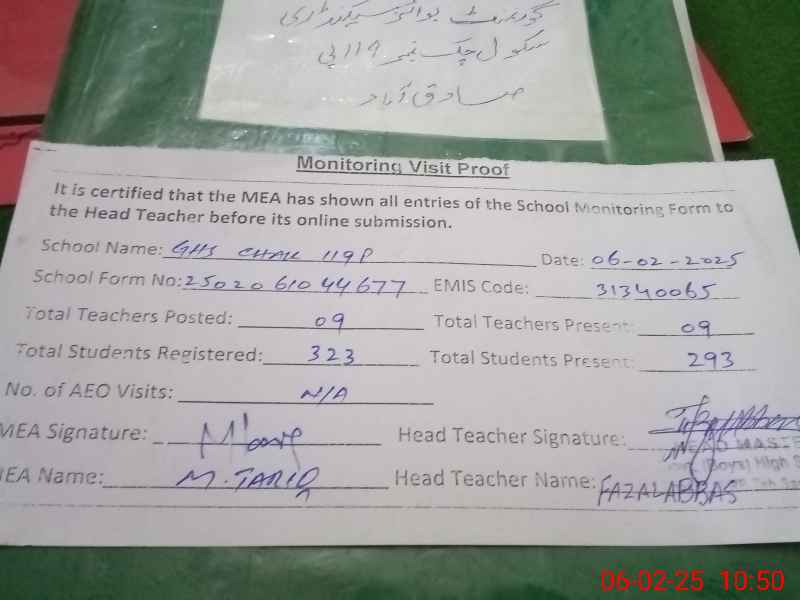 گورنمنٹ بوائز سیکنڈری
سکول چک نمبر 119 پی
صادق آباد
Monitoring Visit Proof
It is certified that the MEA has shown all entries of the School Monitoring Form to
the Head Teacher before its online submission.
School Name: GHS CHAK 119P Date: 06-02-2025
School Form No: 2502061044677 EMIS Code: 31340065
Total Teachers Posted: 09 Total Teachers Present: 09
Total Students Registered: 323 Total Students Present: 293
No. of AEO Visits: N/A
MEA Signature: Head Teacher Signature:
HEAD MASTE
(Boys) High S
MEA Name: M. TARIQ Head Teacher Name: FAZAL ABBAS
06-02-25 10:50